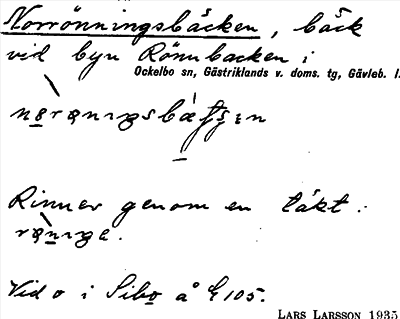 Norrönningsbäcken, bäck
vid byn Rönnbacken i
Ockelbo sn, Gästriklands v. doms. tg, Gävleb. l.
Rinner genom en täkt:
Vid o i Sibo å G 105.
LARS LARSSON 1935